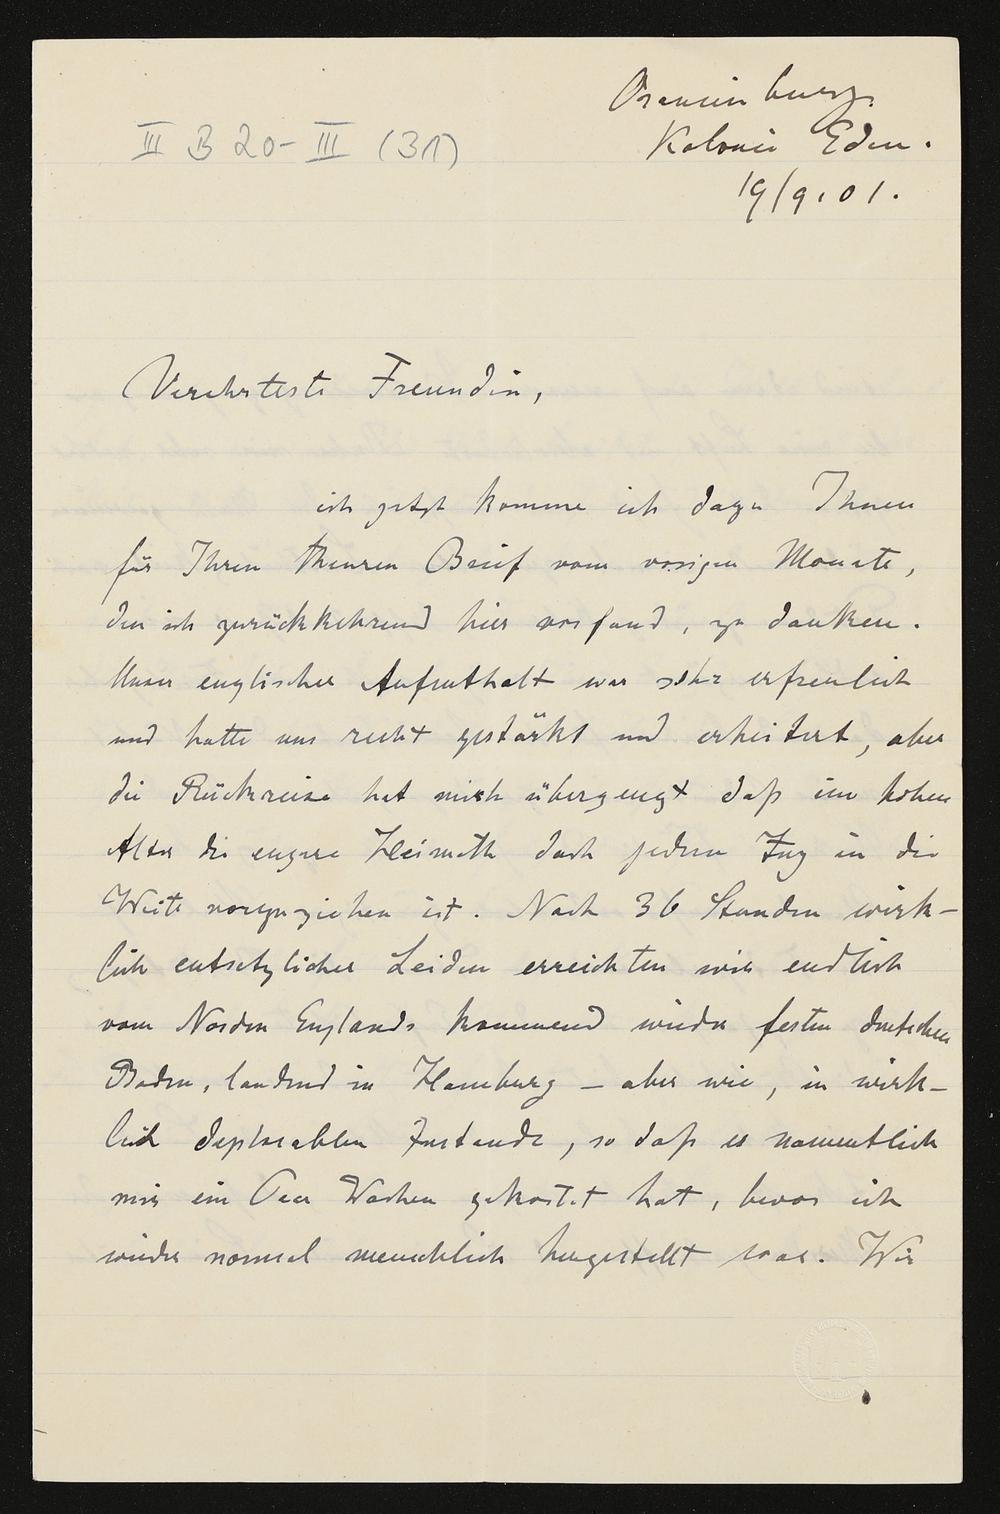 Oranienburg.
III B 20-III (31)
Kolonie Eden.
19/9.01.
Verehrteste Freundin,
ich jetzt komme ich dazu Ihnen
für Ihren theuren Brief vom vorigen Monate,
den ich zurückkehrend hier vorfand, zu danken.
Unser englischer Aufenthalt war sehr erfreulich
und hatte uns recht gestärkt und erheitert, aber
die Rückreise hat mich überzeugt daß im hohen
Alter die engere Heimath doch jedem Zug in die
Weite vorzuziehen ist. Nach 36 Stunden wirk-
lich entsetzlicher Leiden erreichten wir endlich
vom Norden Englands kommend wieder festen deutschen
Boden, landend in Hamburg – aber wie, in wirk-
lich deplorablem Zustande, so daß es namentlich
mir ein Paar Wochen gekostet hat, bevor ich
wieder normal menschlich hergestellt war. Wir